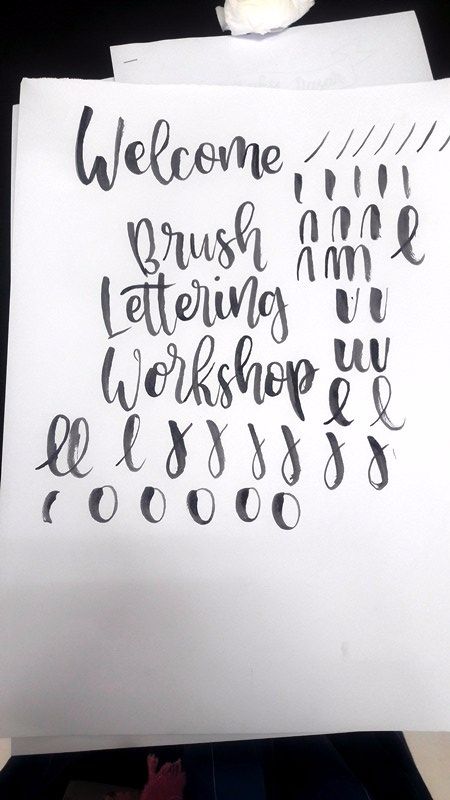 Welcome
Brush
Lettering
Workshop